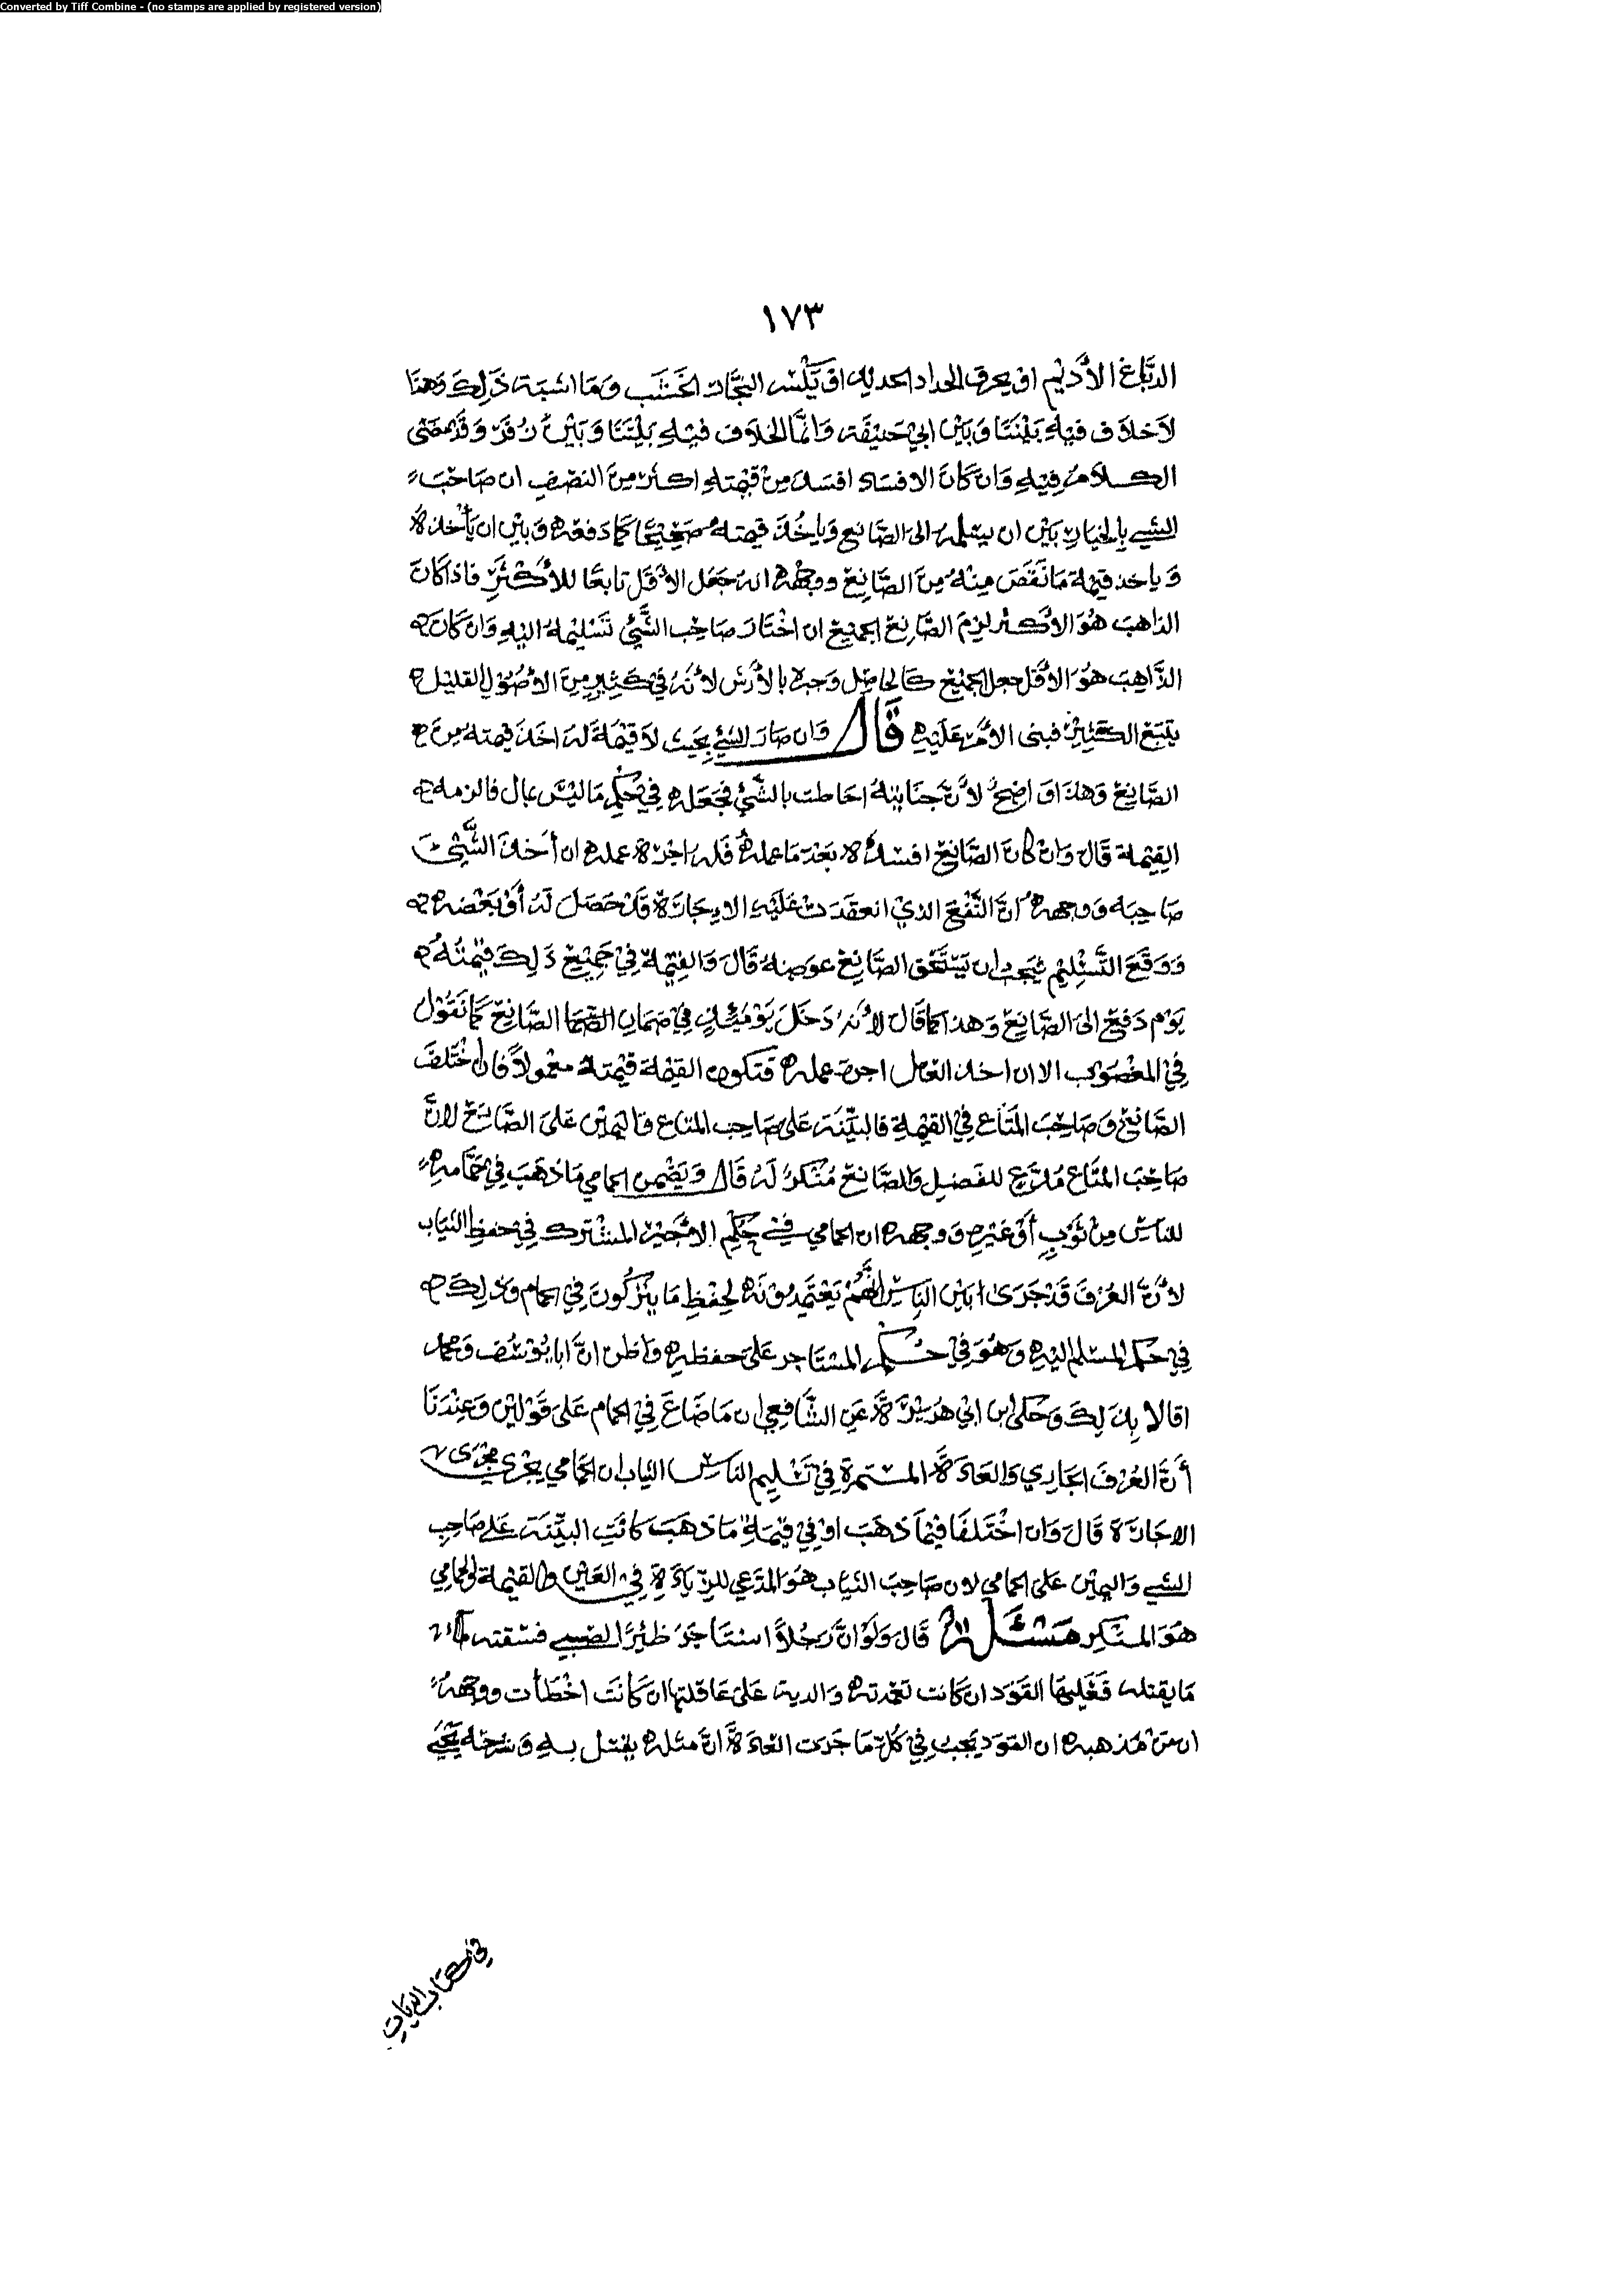 Converted by Tiff Combine - (no stamps are applied by registered version)
١٧٣
الدبَّاغ الأديم او يحرق الحداد الحديد او يكسر النجار الخشب وما اشبه ذلك وهذا
لاخلاف فيه بيننا وبين ابي حنيفة وانما الخلاف فيه بيننا وبين زفر وقد مضى
الكلام فيه وان كان الافساد افسد من قيمته اكثر من النصف ان صاحب
الشيء بالخيار بين ان يسلمه الى الصانع وياخذ قيمته صحيحًا كما دفعه وبين ان يأخذه
وياخذ قيمة مانقص منه من الصانع ووجهه انه جعل الأقل تابعًا للأكثر فاذا كان
الذاهب هو الأكثر لزم الصانع الجميع ان اختار صاحب الشيء تسليمه اليه وان كان
الذَّاهب هو الأقل جعل الجميع كالحاصل وجبره بالأرش لأنه في كثير من الأصول القليل
يتبع الكثير فبنى الأمر عليه قال وان صار الشيء بحيث لا قيمة له اخذ قيمته من
الصانع وهذا واضح لأن جنايته احاطت بالشيء فجعله في حكم ماليس بمال فالزمه
القيمة قال وان كان الصانع افسده بعد ما عمله فله اجرة عمله ان أخذ الشيء
صاحبه ووجهه انَّ النَّفع الذي انعقدت عليه الاجارة قد حصل له أو بعضه
ووقع التَّسليم فيجب ان يستحق الصانع عوضه قال والقيمة في جميع ذلك قيمته
يوم دفع الى الصَّانع وهذا كما قال لأنه دخل يومئذٍ في ضمان الصانع كما نقول
في المغصوب الا ان اخذ العامل اجرة عمله فتكون القيمة قيمته معمولاً فان اختلف
الصَّانع وصاحب المتاع في القيمة فالبيِّنة على صاحب المتاع واليمين على الصَّانع لانَّ
صاحب المتاع مدَّع للفضل والصَّانع منكر له قال ويضمن الحمامي ماذهب في حمَّامه
للناس من ثوب أو غيره ووجهه ان الحمامي في حكم الأجير المشترك في حفظ الثياب
لأنَّ العرف قد جرى بين الناس انهم يعتمدونه لحفظ ما يتركون في الحمام وذلك
في حكم المسلم اليه وهو في حكم المستاجر على حفظه واظن انَّ ابا يوسف ومحمد
اقالا بذلك وحكى ابن ابي هريرة عن الشَّافعي ان ماضاع في الحمام على قولين وعندنا
أنَّ العرف الجاري والعادة المستمرة في تسليم الناس الثياب ان الحمامي يجري مجرى
الاجارة قال وان اختلفا فيما ذهب او في قيمة ما ذهب كانت البيِّنة على صاحب
الشيء واليمين على الحمامي لان صاحب الثياب هو المدَّعي للزيادة في العين والقيمة والحمامي
هو المنكر مسئلة قال ولو انَّ رجلاً استاجر ظئرًا لصبي فسقته
ما يقتله فعليها القود ان كانت تعمدته والدية على عاقلتها ان كانت اخطأت ووجهه
ان من مذهبه ان القود يجب في كل ما جرت العادة انَّ مثله يقتل به وشرحه يجيء
في كتاب الديات